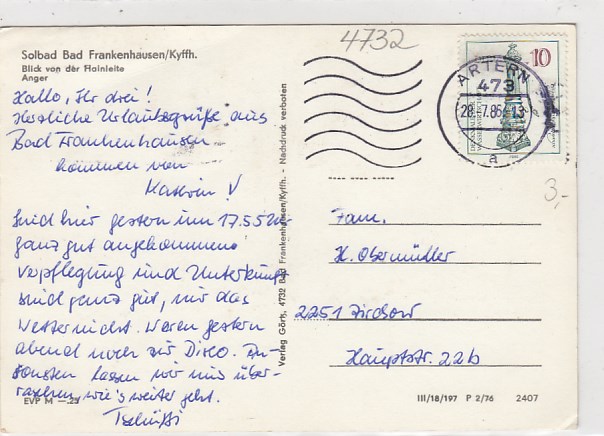 Solbad Bad Frankenhausen/Kyffh.
Blick von der Hainleite
Anger
Hallo, Ihr drei!
Herzliche Urlaubsgrüße aus
Bad Frankenhausen
kommen von
Katrin!
Sind hier gestern um 17.55 Uhr
ganz gut angekommen.
Verpflegung und Unterkunft
sind ganz gut, nur das
Wetter nicht. Waren gestern
abend noch zur Disco. An-
sonsten lassen wir uns über-
raschen, wie's weiter geht.
Tschüßi
EVP M —.25
Verlag Görtz, 4732 Bad Frankenhausen/Kyffh. - Nachdruck verboten
4732
10
ARTERN
473
28.7.86-13
a
3,-
Fam.
H. Obermüller
2251 Zirchow
Hauptstr. 22b
III/18/197 P 2/76 2407